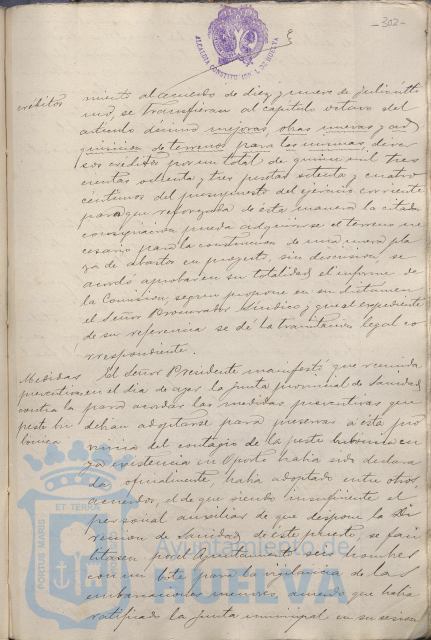 ALCALDIA CONSTITUCIONAL DE HUELVA
-302-
créditos
miento al acuerdo de diez y nueve de Julio últi
mo, se transfieran al capítulo octavo del
artículo décimo mejoras, obras nuevas y ad
quisición de terrenos para las mismas, diver
sos créditos por un total de quince mil tres
cientas ochenta y tres pesetas setenta y cuatro
céntimos del presupuesto del ejercicio corriente
para que reforzada de ésta manera la citada
consignación pueda adquirirse el terreno ne
cesario para la construcción de una nueva pla
za de abastos en proyecto, sin discusión, se
acordó aprobar en su totalidad el informe de
la Comisión, según propone en su dictamen
el Señor Procurador Síndico; y que al expediente
de su referencia se dé la tramitación legal co
rrespondiente.
Medidas
preventivas
contra la
peste bu
bónica
El Señor Presidente manifestó que reunida
en el dia de ayer la Junta provincial de Sanidad
para acordar las medidas preventivas que
deban adoptarse para preservar a ésta pro
vincia del contagio de la peste bubónica cu
ya existencia en Oporto había sido declara
da oficialmente, había adoptado entre otros
acuerdos, el de que siendo insuficiente el
personal auxiliar de que dispone la Di
rección de Sanidad de éste puerto, se faci
litasen por el Ayuntamiento seis hombres
con un bote para la vigilancia de las
embarcaciones menores, acuerdo que había
ratificado la Junta municipal en su sesión
PORTUS MARIS ET TERRAE
Ayuntamiento de
HUELVA